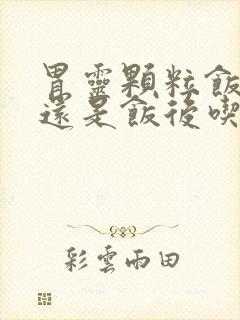 胃靈顆粒飯
還是飯後喫
彩雲雨田